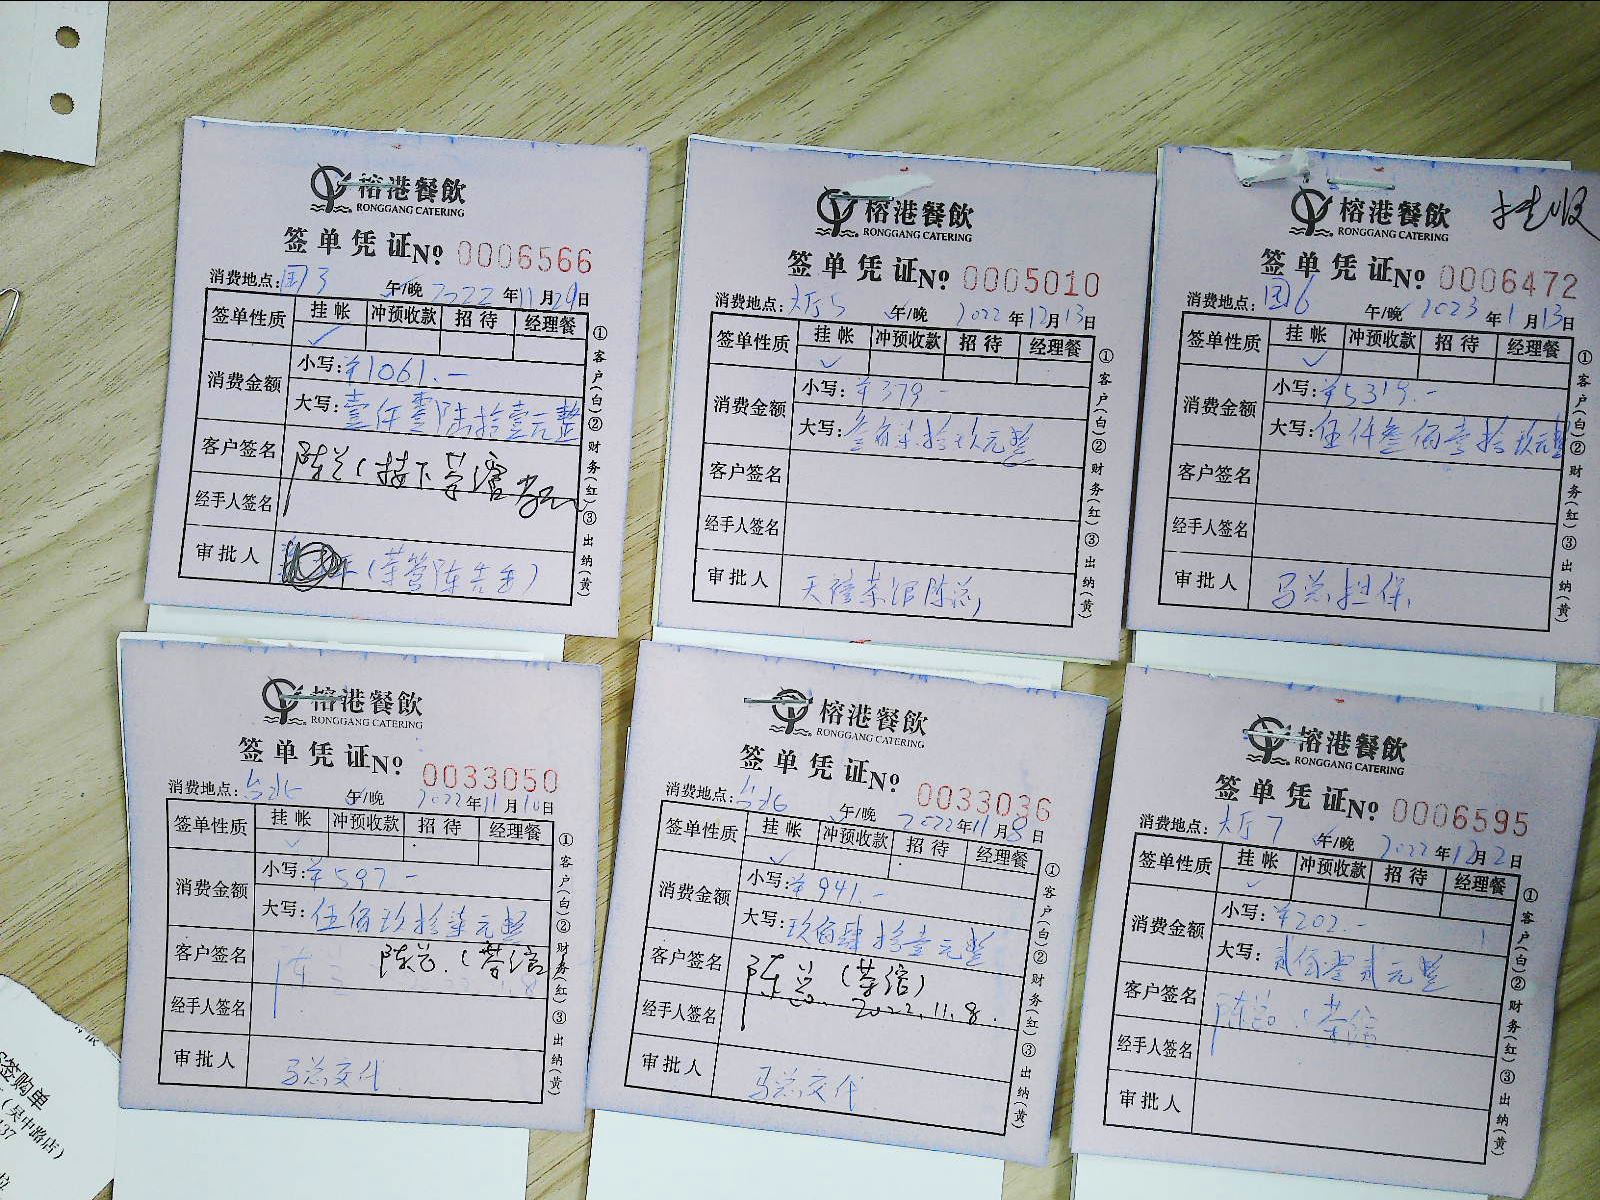 榕港餐飲
RONGGANG CATERING
签单凭证№ 0006566
消费地点: 午/晚 2022年11月29日
签单性质 挂帐 冲预收款 招待 经理餐
消费金额
小写:¥1061.-
大写:壹仟零陆拾壹元整
客户签名 陈总(接下茶馆
经手人签名
审批人
①客户(白)②财务(红)③出纳(黄)
榕港餐飲
RONGGANG CATERING
签单凭证№ 0005010
消费地点:大厅5 午/晚 2022年12月13日
签单性质 挂帐 冲预收款 招待 经理餐
消费金额
小写:¥379-
大写:叁佰柒拾玖元整
客户签名
经手人签名
审批人 茶馆陈总
①客户(白)②财务(红)③出纳(黄)
挂收
榕港餐飲
RONGGANG CATERING
签单凭证№ 0006472
消费地点:团6 午/晚 2023年1月13日
签单性质 挂帐 冲预收款 招待 经理餐
消费金额
小写:¥5319.-
大写:伍仟叁佰壹拾玖元整
客户签名
经手人签名
审批人 马总担保
①客户(白)②财务(红)③出纳(黄)
榕港餐飲
RONGGANG CATERING
签单凭证№ 0033050
消费地点:台北 午/晚 2022年11月10日
签单性质 挂帐 冲预收款 招待 经理餐
消费金额
小写:¥597-
大写:伍佰玖拾柒元整
客户签名 陈总(茶馆
经手人签名
审批人 马总交代
①客户(白)②财务(红)③出纳(黄)
榕港餐飲
RONGGANG CATERING
签单凭证№ 0033036
消费地点:台北 午/晚 2022年11月8日
签单性质 挂帐 冲预收款 招待 经理餐
消费金额
小写:¥941.-
大写:玖佰肆拾壹元整
客户签名 陈总(茶馆)
2022.11.8.
经手人签名
审批人 马总交代
①客户(白)②财务(红)③出纳(黄)
榕港餐飲
RONGGANG CATERING
签单凭证№ 0006595
消费地点:大厅7 午/晚 2022年12月2日
签单性质 挂帐 冲预收款 招待 经理餐
消费金额
小写:¥202.-
大写:贰佰零贰元整
客户签名 陈总(茶馆
经手人签名
审批人
①客户(白)②财务(红)③出纳(黄)
签购单
(吴中路店)